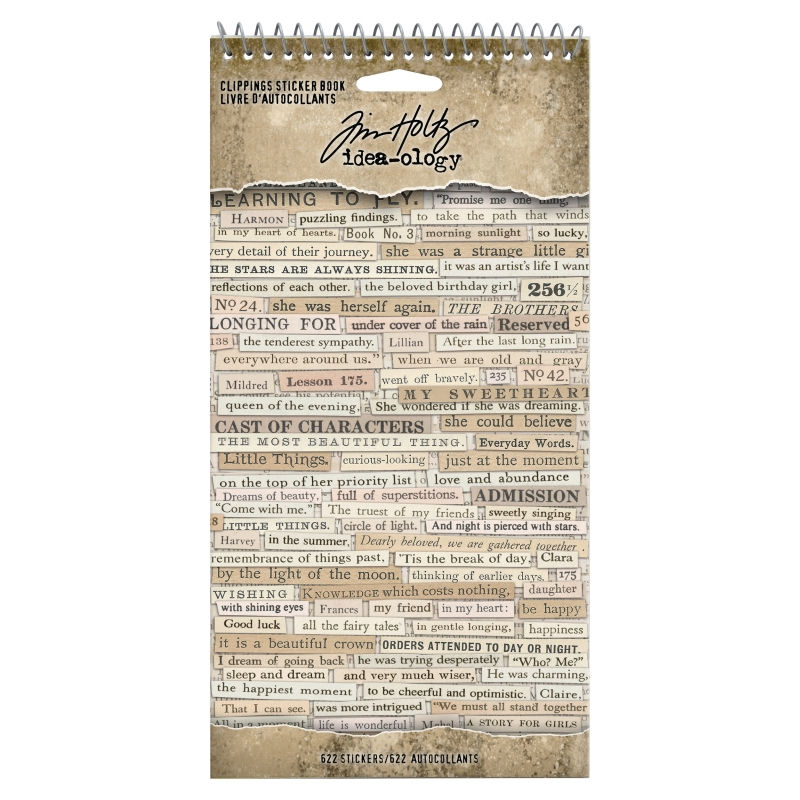 CLIPPINGS STICKER BOOK
LIVRE D'AUTOCOLLANTS
Tim Holtz
idea-ology
LEARNING TO FLY. "Promise me one thing,
HARMON puzzling findings. to take the path that winds
in my heart of hearts. Book No. 3 morning sunlight so lucky,
very detail of their journey. she was a strange little gi
HE STARS ARE ALWAYS SHINING. it was an artist's life I want
reflections of each other. the beloved birthday girl, 256½
No 24. she was herself again. THE BROTHERS
LONGING FOR under cover of the rain Reserved 56
138 the tenderest sympathy. Lillian After the last long rain.
everywhere around us." when we are old and gray
Mildred Lesson 175. went off bravely. 235 No 42.
MY SWEETHEART
queen of the evening, She wondered if she was dreaming.
CAST OF CHARACTERS she could believe
THE MOST BEAUTIFUL THING. Everyday Words.
Little Things. curious-looking just at the moment
on the top of her priority list love and abundance
Dreams of beauty, full of superstitions. ADMISSION
"Come with me." The truest of my friends sweetly singing
8 LITTLE THINGS. circle of light. And night is pierced with stars.
Harvey in the summer, Dearly beloved, we are gathered together.
remembrance of things past, 'Tis the break of day, Clara
by the light of the moon. thinking of earlier days, 175
WISHING KNOWLEDGE which costs nothing, daughter
with shining eyes Frances my friend in my heart: be happy
Good luck all the fairy tales in gentle longing, happiness
it is a beautiful crown ORDERS ATTENDED TO DAY OR NIGHT.
I dream of going back he was trying desperately "Who? Me?"
sleep and dream and very much wiser, He was charming,
the happiest moment to be cheerful and optimistic. Claire,
That I can see. was more intrigued "We must all stand together
All in a moment life is wonderful Mabel A STORY FOR GIRLS
622 STICKERS/622 AUTOCOLLANTS